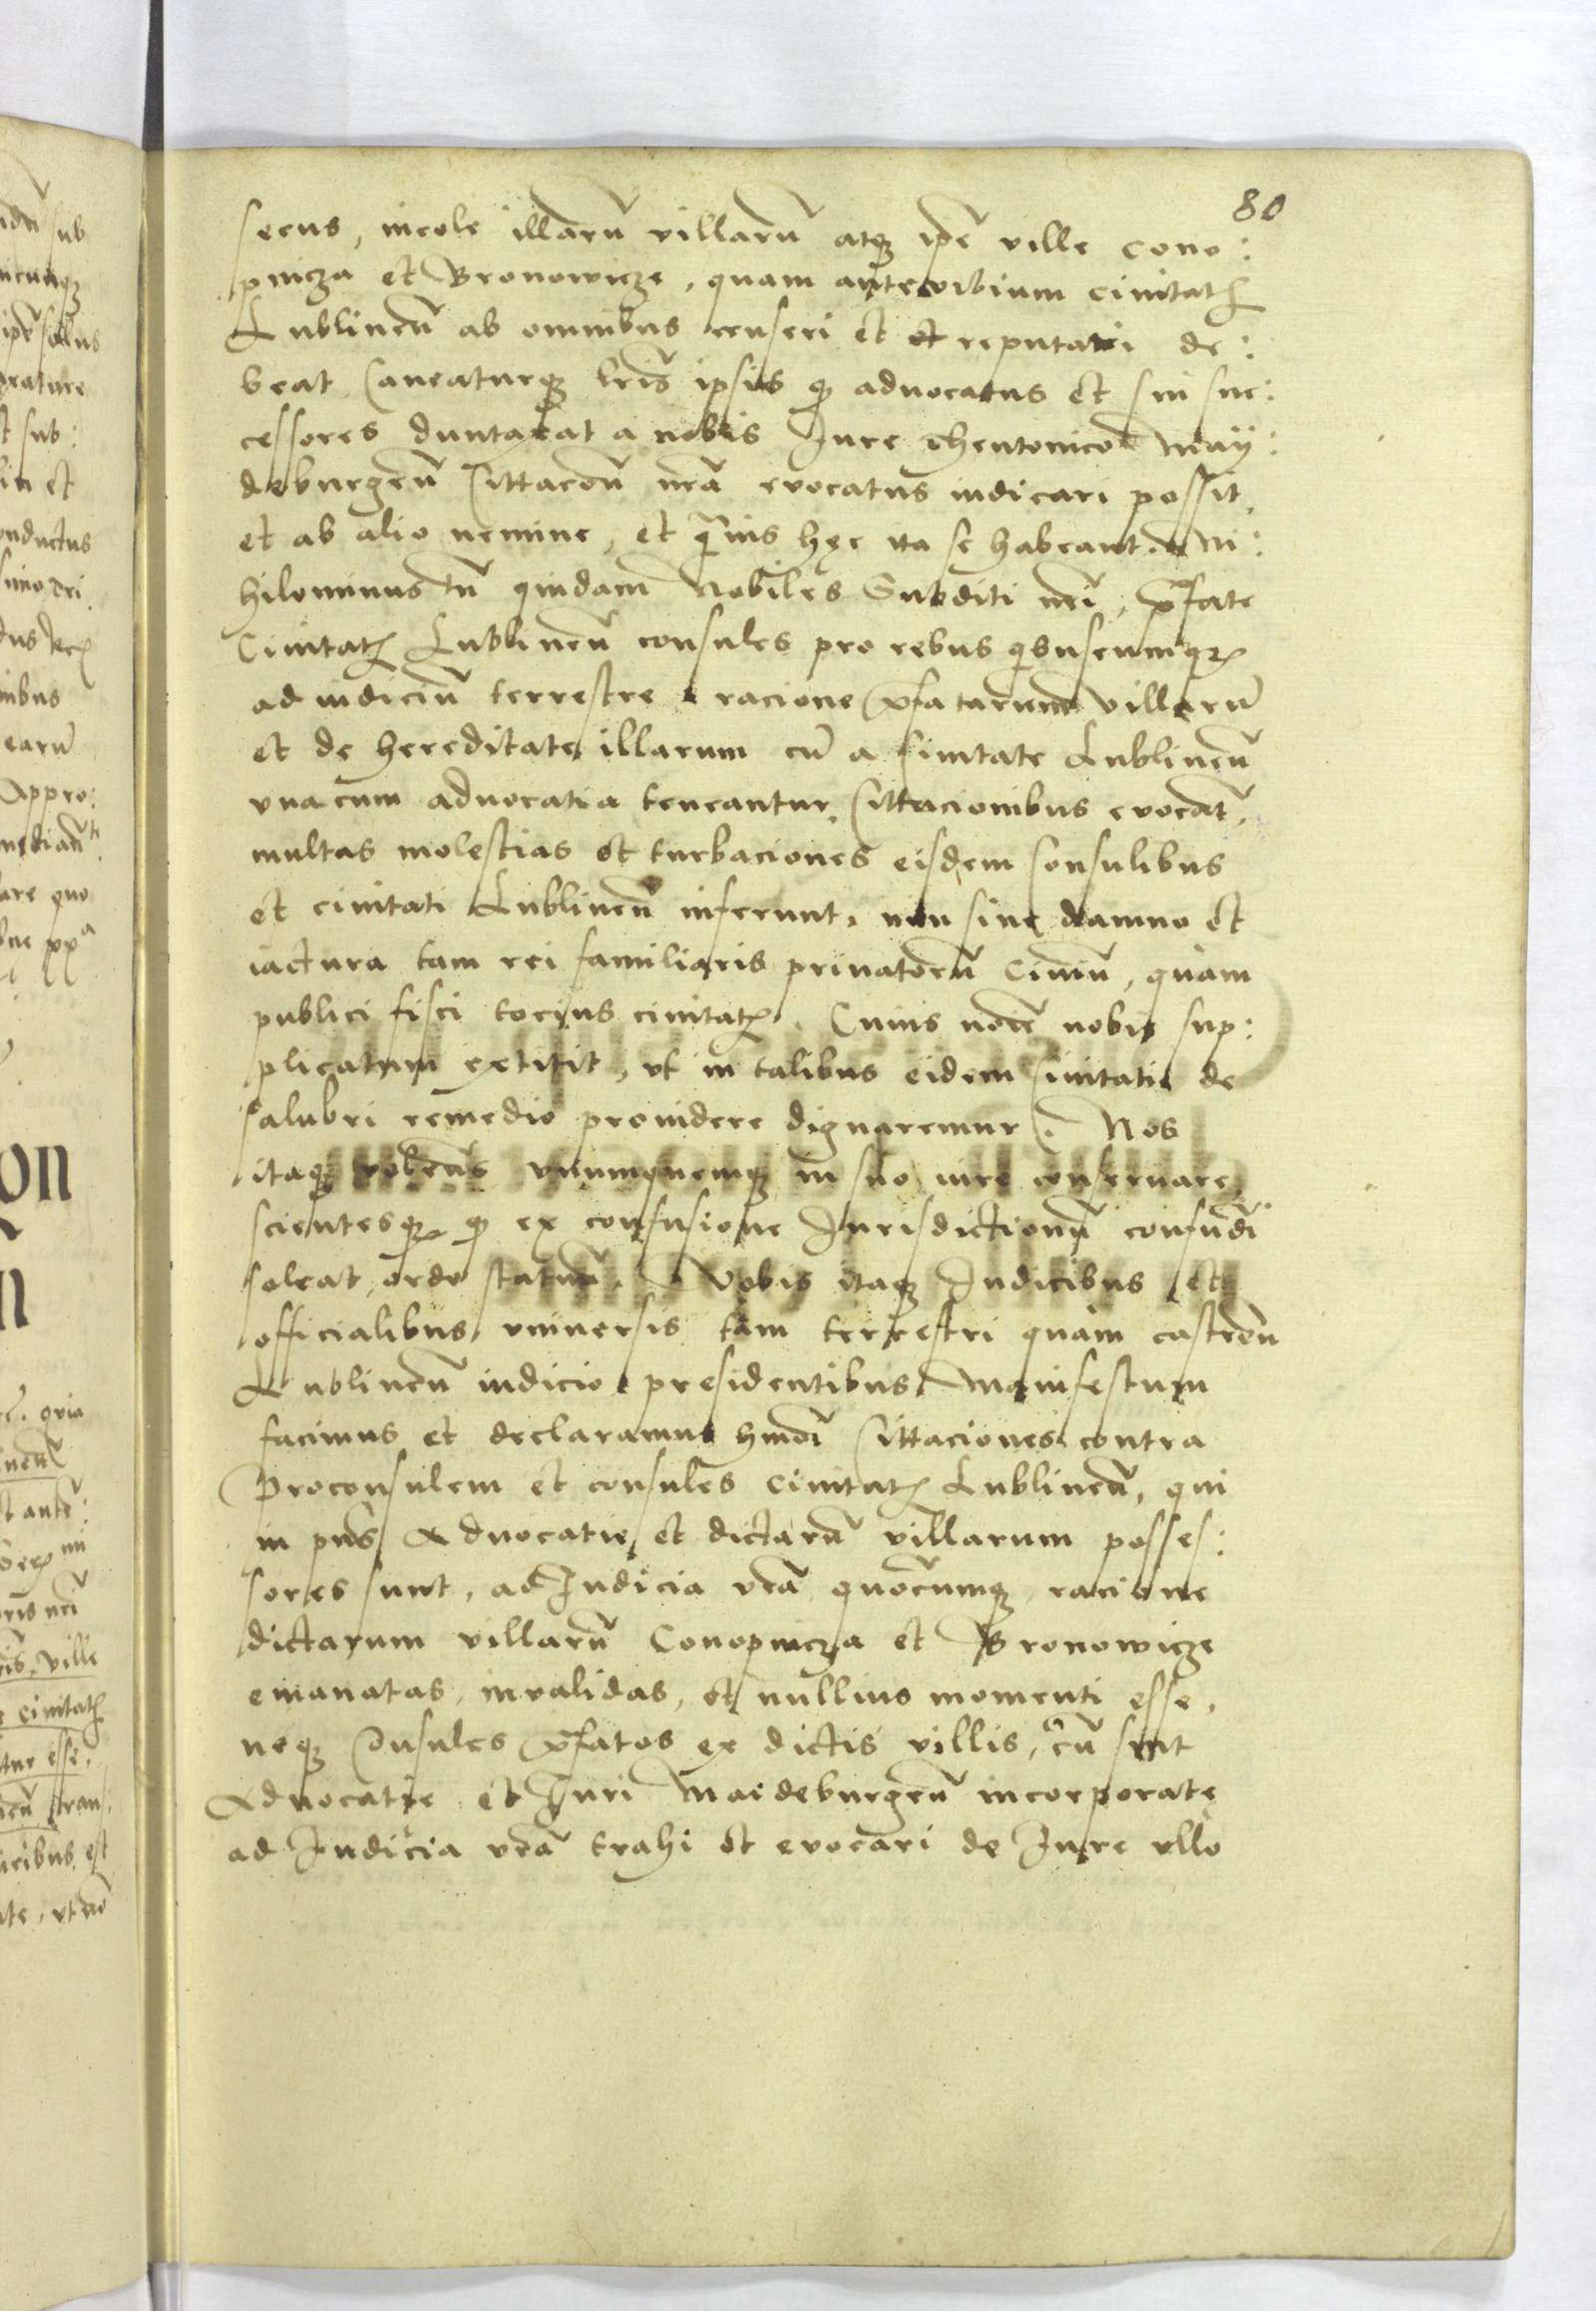 80
secus, incole illarũ villarũ atqꝫ ipẽ ville Cono:
pnicza et Bronowicze, quam antevrbium ciuitatꝭ
Lublineñ ab omnibus censeri et et reputari de:
beat Caueaturqꝫ lr̃is ipsis qꝫ aduocatus et sui suc:
cessores duntaxat a nobis Iure Theutonico May:
deburgeñ Cittacoñ nr̃a euocatus iudicari possit,
et ab alio nemine, et q̃uis hęc ita se habeant. Ni:
hilominus tñ quidam Nobiles Subditi nr̃i, p̃fate
Ciuitatꝭ Lublineñ consules pro rebus qⁱbuscumqꝫ
ad iudiciũ terrestre racione p̃fatarum villarũ
et de hereditate illarum cũ a Ciuitate Lublineñ
vna cum aduocatia teneantur, Cittacionibus euocañt,
multas molestias et turbaciones eisdem Consulibus
et ciuitati Lublineñ inferunt, non sine damno et
iactura tam rei familiaris priuatorũ Ciuiũ, quam
publici fisci tocius ciuitatꝭ. Cuius noĩe nobis sup:
plicatum extitit, vt in talibus eidem Ciuitati de
salubri remedio prouidere dignaremur. Nos
itaqꝫ volentes vnumquemqꝫ in suo iure conseruare,
scientesqꝫ qꝫ ex confusione Iurisdictionũ confũdi
soleat ordo statuũ. Vobis itaqꝫ Iudicibus et
officialibus vniuersis tam terrestri quam castreñ
Lublineñ iudicio presidentibus Manifestum
facimus et declaramus hmõi Cittaciones contra
Proconsulem et consules Ciuitatꝭ Lublineñ, qui
in pñs Aduocatie et dictarũ villarum posses:
sores sunt, ad Iudicia vr̃a quocũmqꝫ racione
dictarum villarũ Conopnicza et Bronowicze
emanatas, inualidas, et nullius momenti esse,
neqꝫ Consules p̃fatos ex dictis villis, cũ sint
Aduocatie et Iuri Maideburgeñ incorporate
ad Iudicia vr̃a trahi et euocari de Iure vllo